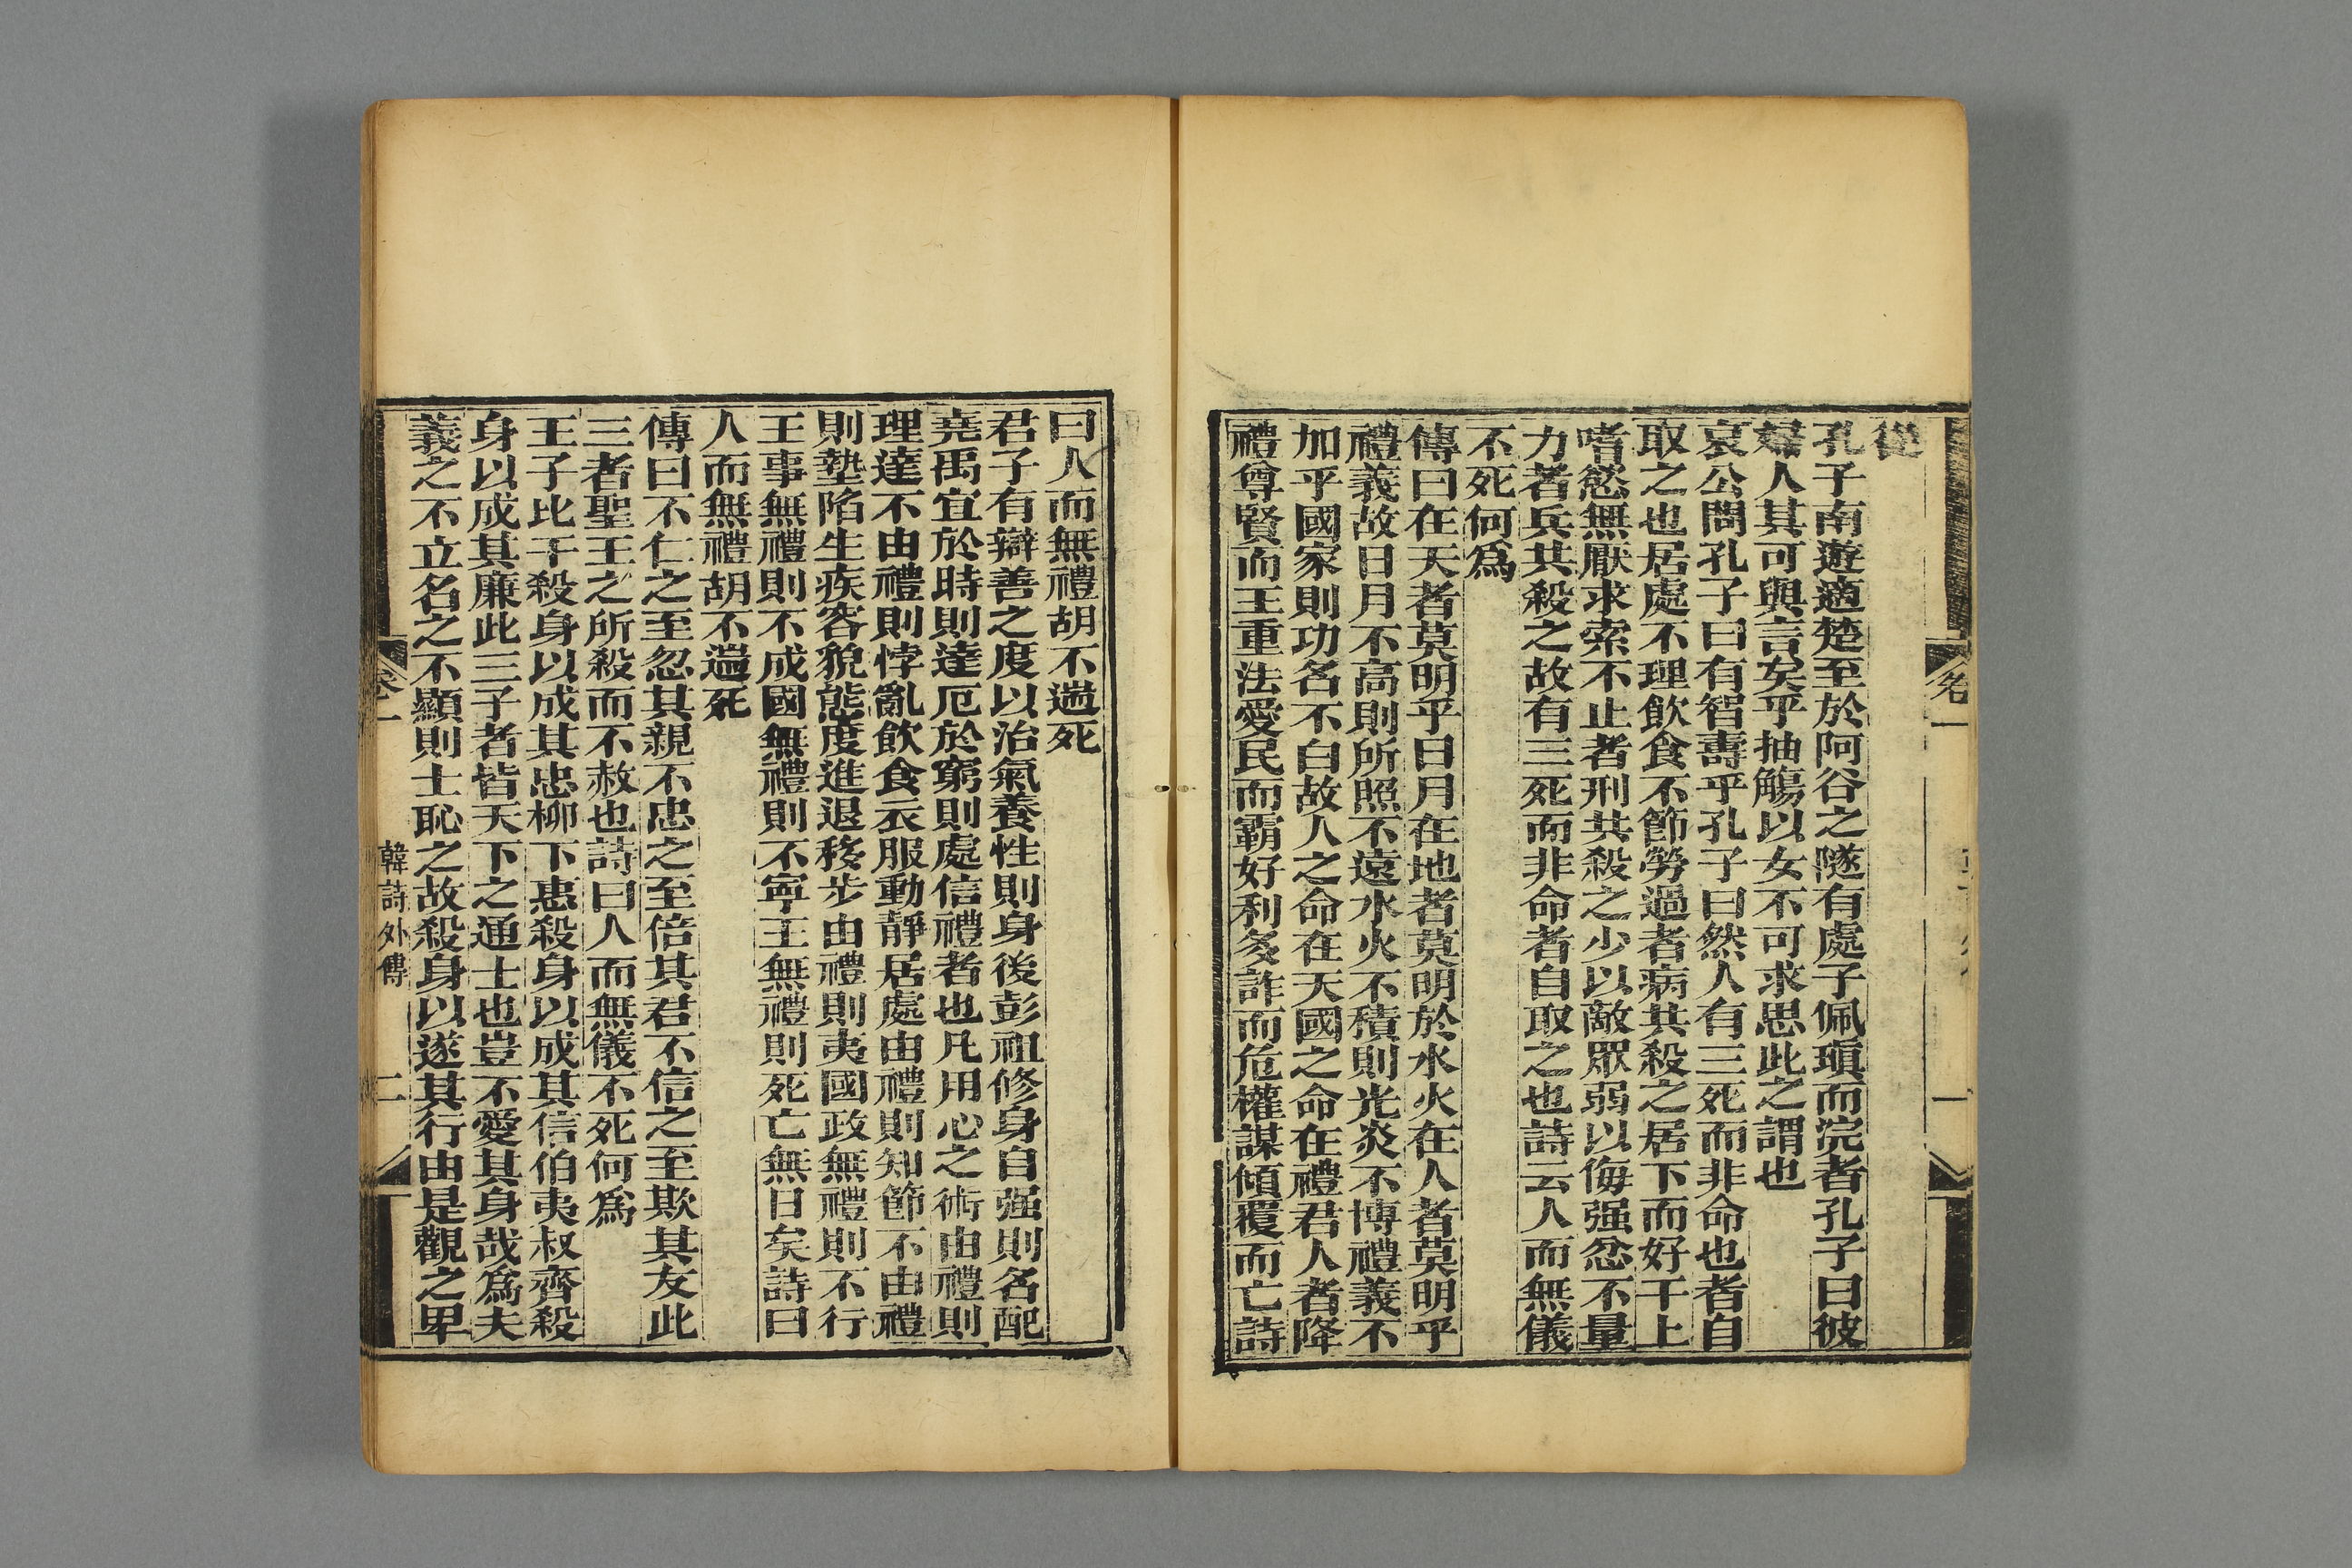 從
孔子南遊適楚至於阿谷之隧有處子佩瑱而浣者孔子曰彼
婦人其可與言矣乎抽觴以女不可求思此之謂也
哀公問孔子曰有智壽乎孔子曰然人有三死而非命也者自
取之也居處不理飲食不節勞過者病共殺之居下而好干上
嗜慾無厭求索不止者刑共殺之少以敵眾弱以侮强忿不量
力者兵共殺之故有三死而非命者自取之也詩云人而無儀
不死何爲
傳曰在天者莫明乎日月在地者莫明於水火在人者莫明乎
禮義故日月不高則所照不遠水火不積則光炎不博禮義不
加乎國家則功名不白故人之命在天國之命在禮君人者降
禮尊賢而王重法愛民而霸好利多詐而危權謀傾覆而亡詩
曰人而無禮胡不遄死
君子有辯善之度以治氣養性則身後彭祖修身自强則名配
堯禹宜於時則達厄於窮則處信禮者也凡用心之術由禮則
理達不由禮則悖亂飲食衣服動靜居處由禮則知節不由禮
則墊陷生疾容貌態度進退移步由禮則夷國政無禮則不行
王事無禮則不成國無禮則不寧王無禮則死亡無日矣詩曰
人而無禮胡不遄死
傳曰不仁之至忽其親不忠之至倍其君不信之至欺其友此
三者聖王之所殺而不赦也詩曰人而無儀不死何爲
王子比干殺身以成其忠柳下惠殺身以成其信伯夷叔齊殺
身以成其廉此三子者皆天下之通士也豈不愛其身哉爲夫
義之不立名之不顯則士恥之故殺身以遂其行由是觀之卑
卷一 韓詩外傳 二